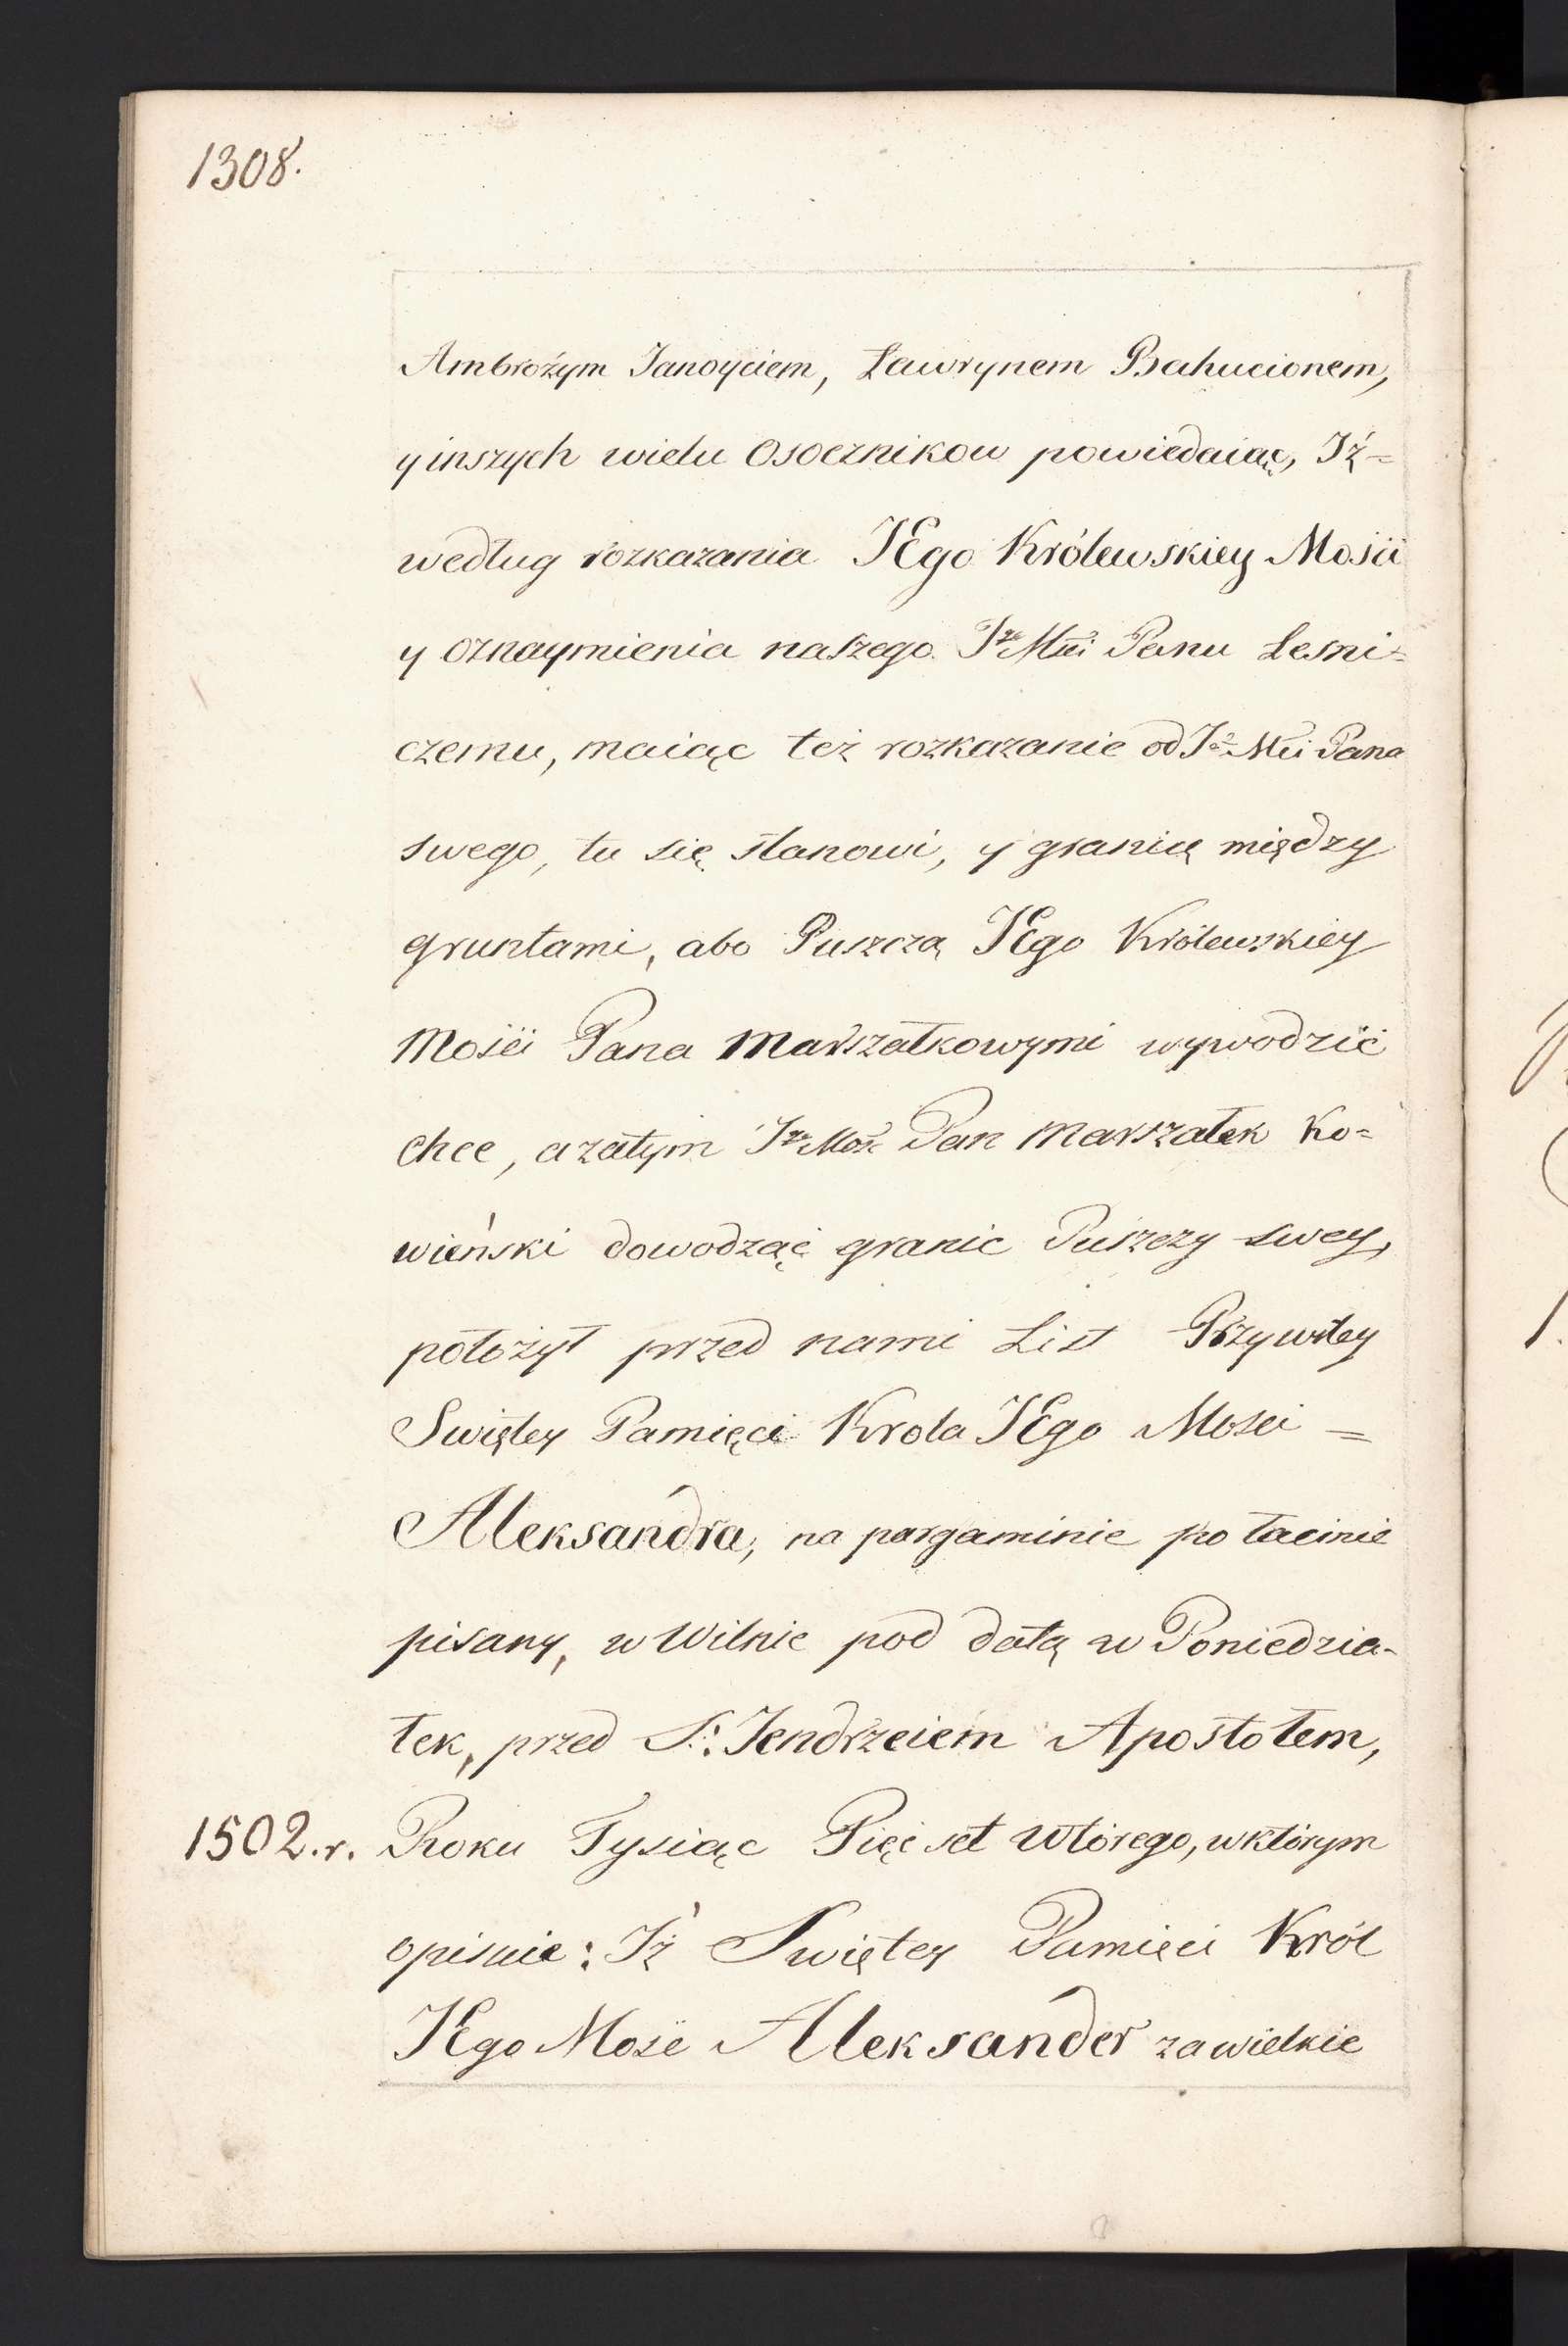 1308.
Ambrożym Janoyciem, Ławrynem Bahucionem,
y inszych wielu Osocznikow powiedaiąc, Iż=
według rozkazania JEgo Królewskiey Mości
y oznaymienia naszego Jº Mci Panu Lesni=
czemu, maiąc też rozkazanie od Jº Mci Pana
swego, tu się stanowi, y granicę między
gruntami, abo Puszczą JEgo Królewskiey
Mości Pana Marszałkowymi wywodzić
chce, a zatym Jº Mość Pan Marszałek Ko=
wieński dowodząc granic Puszczy swey,
położył przed nami List Przywiley
Swiętey Pamięci Krola JEgo Mosci =
Aleksandra, na pargaminie po łacinie
pisany, w Wilnie pod datą w Poniedzia-
łek, przed S: Jendrzeiem Apostołem,
1502.r. Roku Tysiąc Pięć set Wtórego, w którym
opisuie: Iż Swiętey Pamięci Król
JEgo Mość Aleksander za wielkie